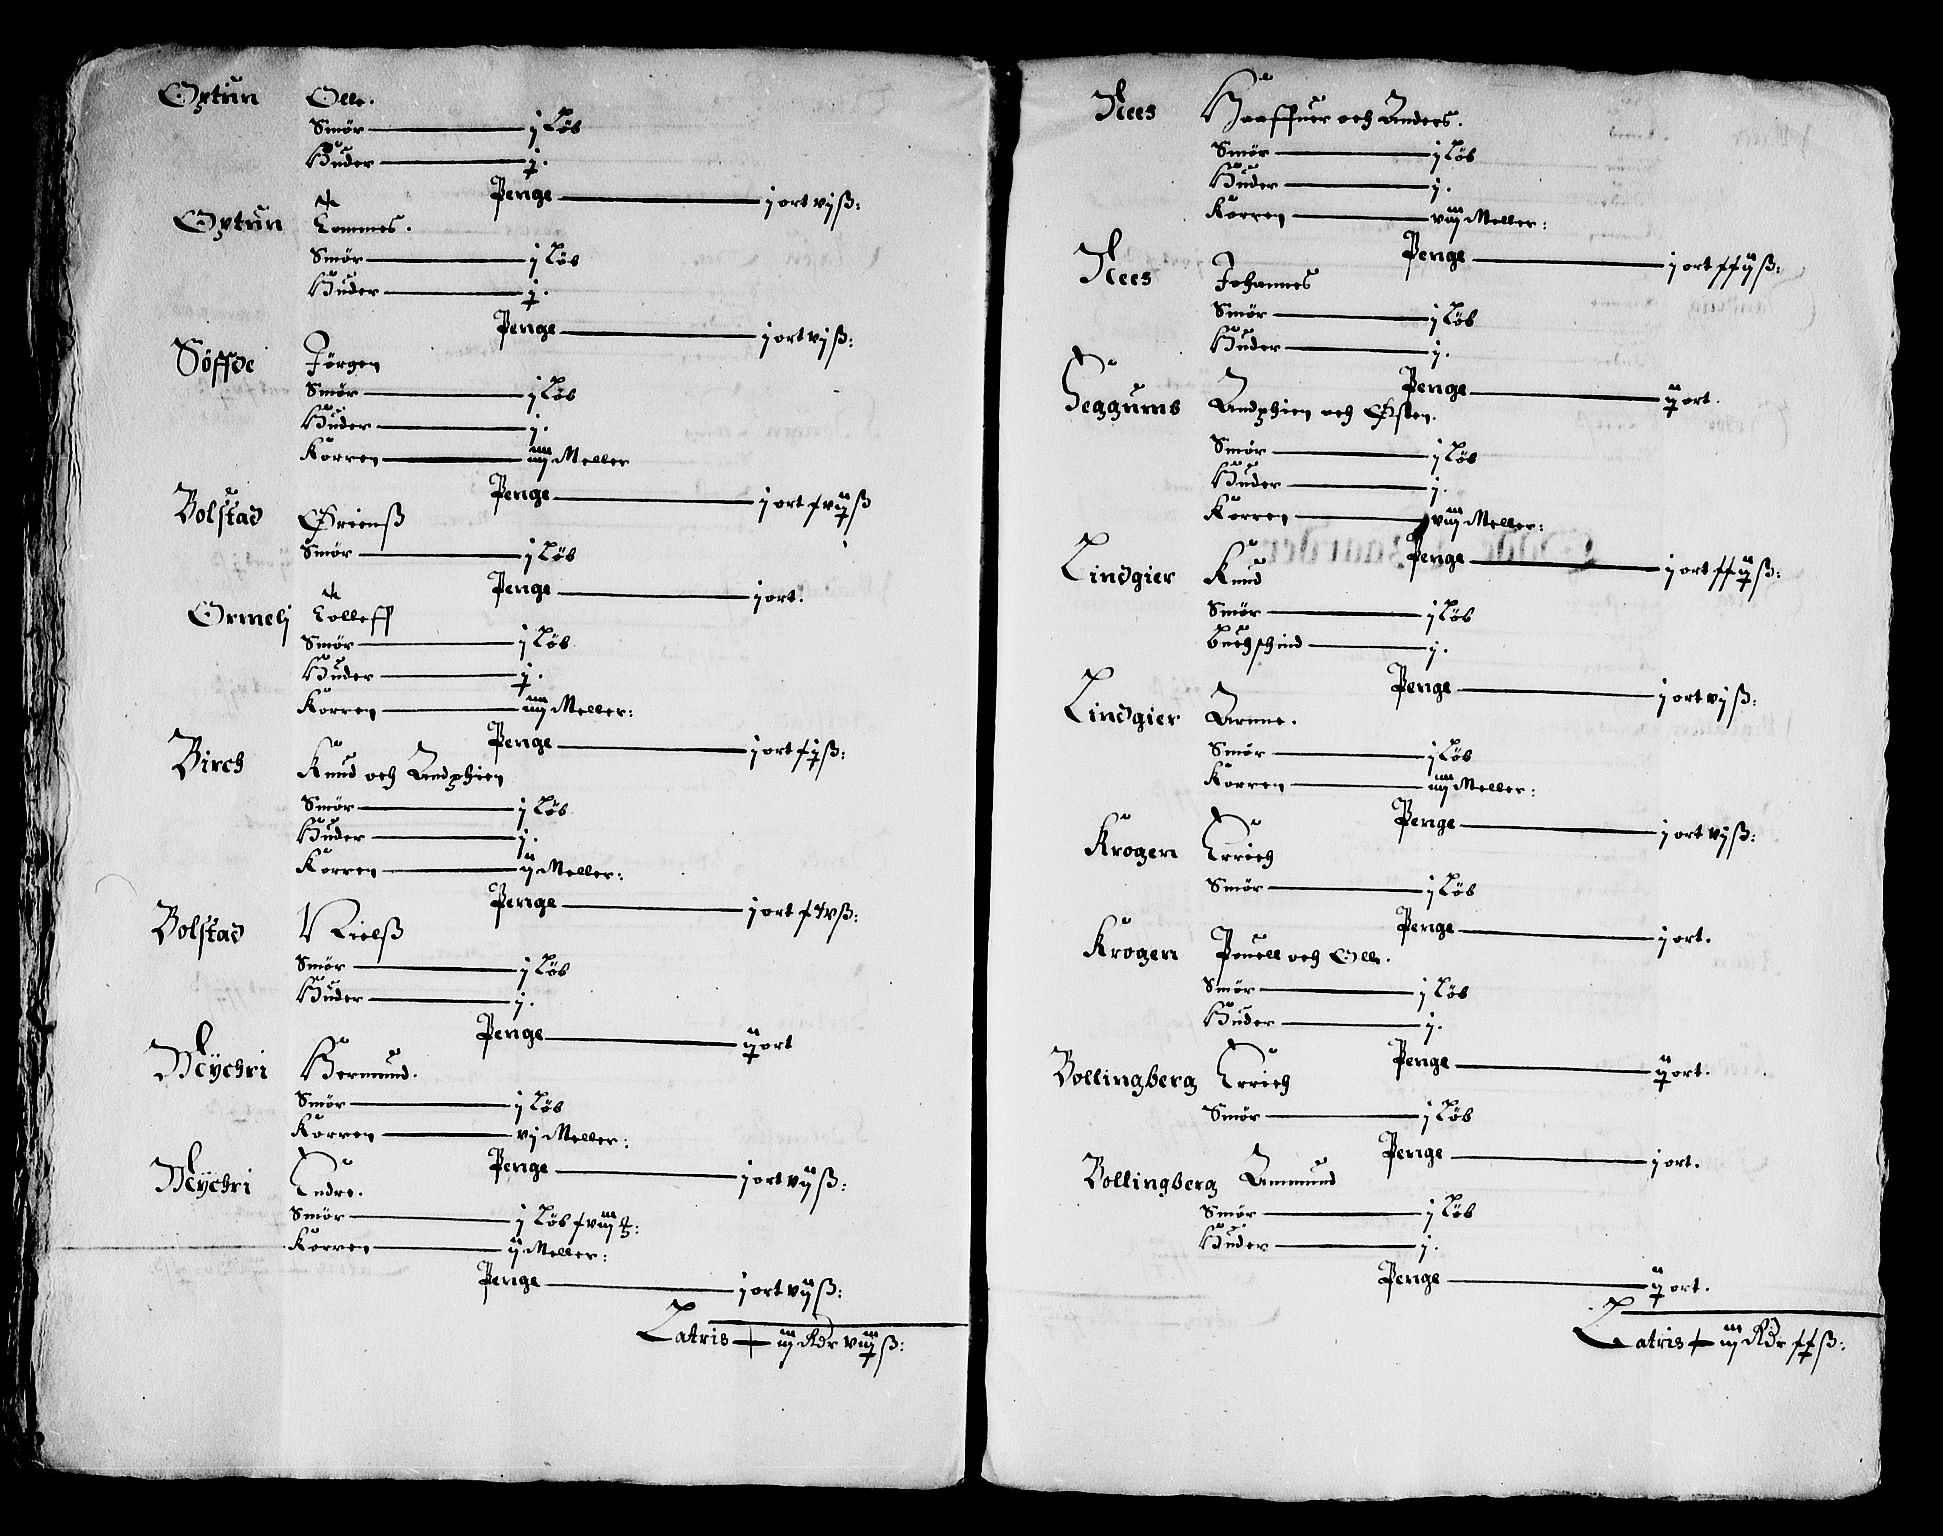 Optun Olle.
Smør — j Løb
Huder — j.
Penge — j ort vjß:
Optun Tommes.
Smør — j Løb
Huder — j.
Penge — j ort vjß:
Søffde Jørgen
Smør — j Løb
Huder — j.
Korren — iiij Meller
Penge — j ort
Bolstad Ørienß
Smør — j Løb
Penge — j ort.
Ormelj Tolleff
Smør — j Løb
Huder — j.
Korren — iiij Meller:
Penge — j ort
Birch Knud och Andphien
Smør — j Løb
Huder — j.
Korren — ij Meller:
Penge — j ort
Bolstad Nielß
Smør — j Løb
Huder — j.
Penge — ort
Mÿchri Hermund.
Smør — j Løb
Korren — vj Meller:
Penge — j ort vijß:
Mÿchri Endre.
Smør — j Løb
Korren — ij Meller:
Penge — j ort vijß:
Latris — iij Rdr
Nees Haaffuer och Anders.
Smør — j Løb
Huder — j.
Korren — viij Meller:
Penge — j ort
Nees Johannes
Smør — j Løb
Huder — j.
Penge — ort.
Heggums Andphien och Østen.
Smør — j Løb
Huder — j.
Korren — viij Meller:
Penge — j ort
Lindgier Knud
Smør — j Løb
buchschind — j.
Penge — j ort vjß:
Lindgier Arne.
Smør — j Løb
Korren — iiij Meller:
Penge — j ort vjß:
Krogen Errich
Smør — j Løb
Penge — j ort.
Krogen Pouell och Olle.
Smør — j Løb
Huder — j.
Penge — ort.
Bollingberg Errich
Smør — j Løb
Penge — j ort.
Bollingberg Ammund
Smør — j Løb
Huder — j.
Penge — ort.
Latris — iij Rdr